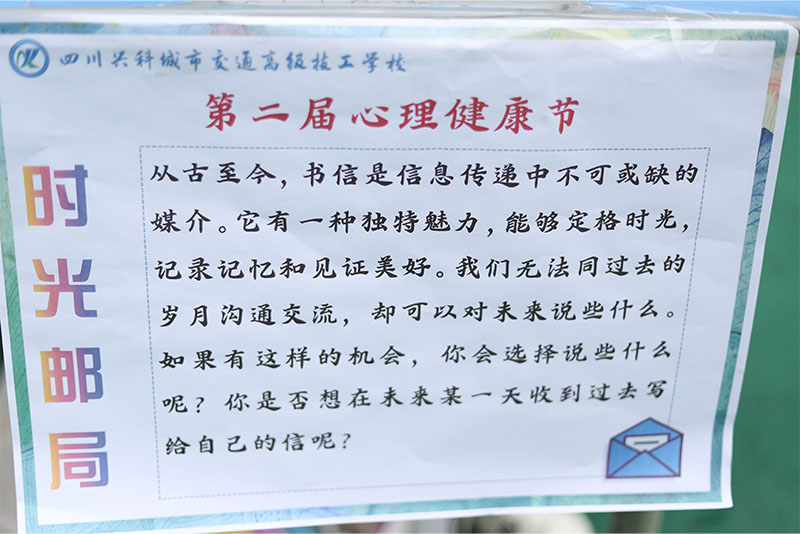 四川兴科城市交通高级技工学校
第二届心理健康节
时光邮局
从古至今，书信是信息传递中不可或缺的
媒介。它有一种独特魅力，能够定格时光，
记录记忆和见证美好。我们无法同过去的
岁月沟通交流，却可以对未来说些什么。
如果有这样的机会，你会选择说些什么
呢？你是否想在未来某一天收到过去写
给自己的信呢？